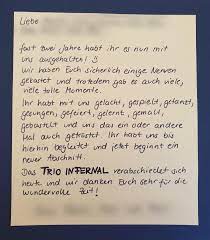 Liebe
fast zwei Jahre habt ihr es nun mit
uns ausgehalten! :)
Wir haben Euch sicherlich einige Nerven
gekostet und trotzdem gab es auch viele,
viele tolle Momente.
Ihr habt mit uns gelacht, gespielt, getanzt,
gesungen, gefeiert, gelernt, gemalt,
gebastelt und uns das ein oder andere
Mal auch getröstet. Ihr habt uns bis
hierhin begleitet und jetzt beginnt ein
neuer Abschnitt.
Das TRIO INFERNAL verabschiedet sich
heute und wir danken Euch sehr für die
wundervolle Zeit!